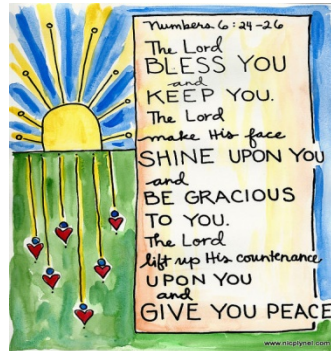 Numbers 6:24-26
The Lord
BLESS YOU
and
KEEP YOU.
The Lord
make His face
SHINE UPON YOU
and
BE GRACIOUS
TO YOU.
The Lord
lift up His countenance
UPON YOU
and
GIVE YOU PEACE
www.nicplynel.com